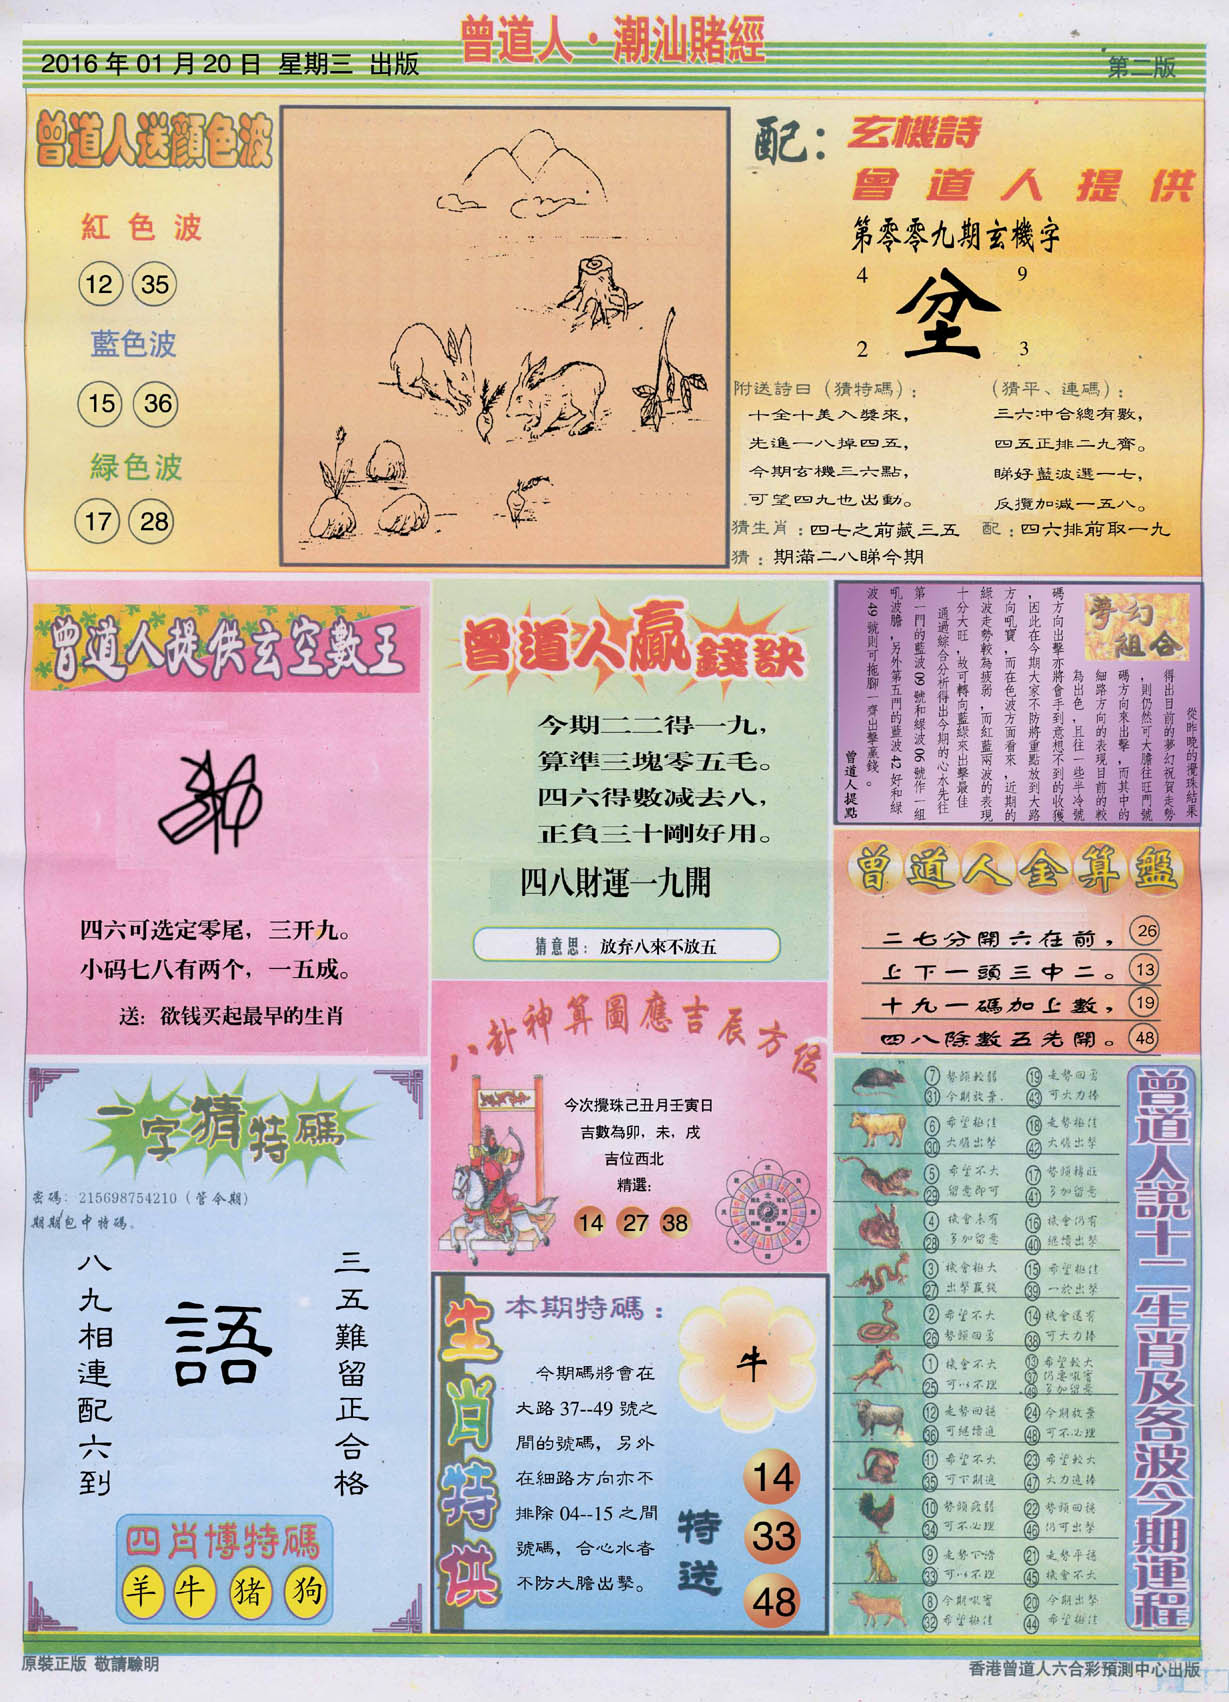 曾道人·潮汕賭經
2016 年 01 月 20 日 星期三 出版
第二版
曾道人送顏色波
紅色波
12 35
藍色波
15 36
緑色波
17 28
配：玄機詩
曾道人提供
第零零九期玄機字
4 9
坌
2 3
附送詩曰（猜特碼）：
十全十美入獎來，
先進一八掉四五，
今期玄機三六點，
可望四九也出動。
（猜平、連碼）：
三六冲合總有數，
四五正排二九齊。
睇好藍波選一七，
反攬加減一五八。
猜生肖：四七之前藏三五
配：四六排前取一九
猜：期滿二八睇今期
曾道人提供玄空數王
四六可选定零尾，三开九。
小码七八有两个，一五成。
送：欲钱买起最早的生肖
曾道人贏錢訣
今期二二得一九，
算準三塊零五毛。
四六得數減去八，
正負三十剛好用。
四八財運一九開
猜意思：放弃八來不放五
夢幻組合
從昨晚的攪珠結果
得出目前的夢幻祝賀走勢
，則仍然可大膽往旺門號
碼方向來出擊，而其中的
細路方向的表現目前的較
為出色，且往一些半冷號
碼方向出擊亦將會手到意想不到的收獲
，因此在今期大家不防將重點放到大路
方向吼寶，而在色波方面看來，近期的
綠波走勢較為疲弱，而紅藍兩波的表現
十分大旺，故可轉向藍綠來出擊最佳
通過綜合分析得出今期的心水先往
第一門的藍波 09 號和綠波 06 號作一組
吼波膽，另外第五門的藍波 42 好和綠
波 49 號則可拖腳一齊出擊贏錢。
曾道人提點
曾道人金算盤
二七分開六在前，26
上下一頭三中二。13
十九一碼加上數，19
四八除數五先開。48
八卦神算圖應吉辰方位
今次攪珠己丑月壬寅日
吉數為卯，未，戌
吉位西北
精選：
14 27 38
一字猜特碼
密碼：215698754210（管令期）
期期包中特碼。
三五難留正合格
語
八九相連配六到
四肖博特碼
羊 牛 猪 狗
生肖特供
本期特碼：
牛
今期碼將會在
大路 37--49 號之
間的號碼，另外
在細路方向亦不
排除 04--15 之間
號碼，合心水者
不防大膽出擊。
特送
14
33
48
曾道人説十二生肖及各波今期運程
7 勢頭較弱 19 走勢回勇
31 今期放棄 43 可大力捧
6 希望極佳 18 走勢極佳
30 大膽出擊 42 大膽出擊
5 希望不大 17 勢頭轉旺
29 留意即可 41 多加留意
4 機會未有 16 機會仍有
28 多加留意 40 繼續出擊
3 機會極大 15 希望極佳
27 出擊贏錢 39 一於出擊
2 希望不大 14 機會還有
26 勢頭回勇 38 可大力捧
1 機會不大 13 希望較大
25 可以不理 37 仍要吼實
49 多加留意
12 走勢回穩 24 今期放棄
36 可繼續追 48 可不必理
11 希望不大 23 希望較大
35 可下期追 47 大力追捧
10 勢頭疲弱 22 勢頭回穩
34 可不必理 46 仍可出擊
9 走勢下滑 21 走勢平穩
33 可以不理 45 機會不大
8 今期吼實 20 今期出擊
32 希望極佳 44 希望極佳
原裝正版 敬請驗明
香港曾道人六合彩預測中心出版